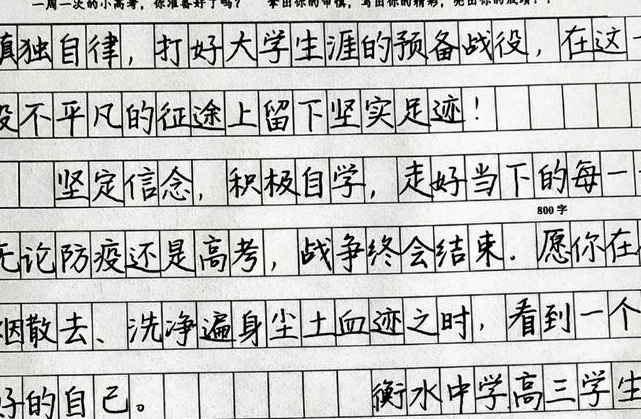 一周一次的小高考，你准备好了吗？ 拿出你的审慎，写出你的精彩，亮出你的成绩！
慎独自律，打好大学生涯的预备战役，在这一
段不平凡的征途上留下坚实足迹！
坚定信念，积极自学，走好当下的每一
800字
无论防疫还是高考，战争终会结束．愿你在
烟散去、洗净遍身尘土血迹之时，看到一个
好的自己。 衡水中学高三学生